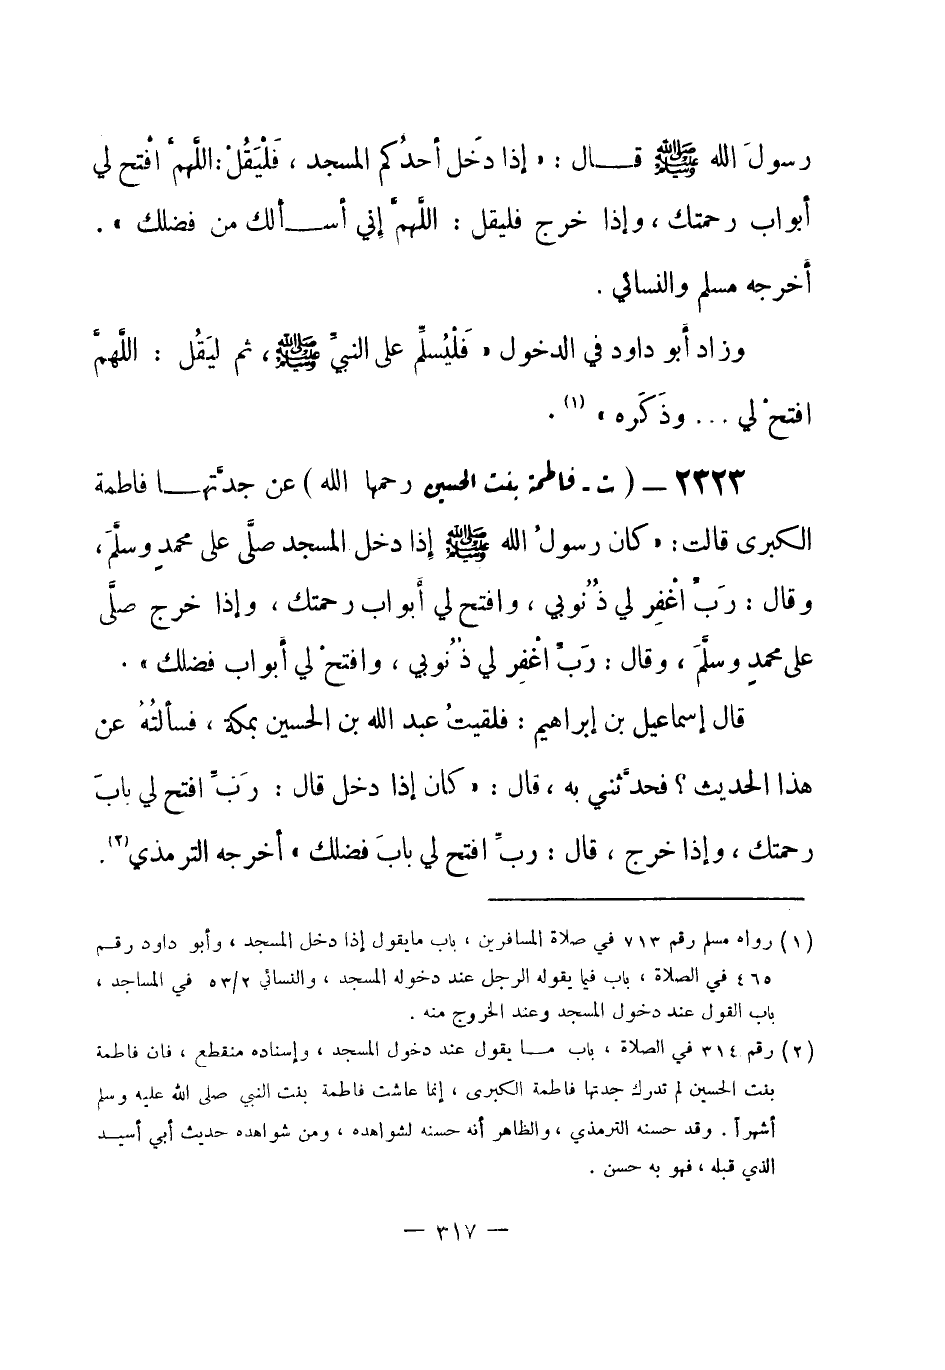 رسولَ الله ﷺ قــال : « إذا دَخل أحدُكم المسجد ، فَلْيَقُلْ : اللَّهمَّ افْتح لي
أبواب رحمتك ، وإذا خرج فليقل : اللَّهمَّ إني أســألك من فضلك » .
أخرجه مسلم والنسائي .
وزاد أبو داود في الدخول « فَلْيُسلِّم على النبيِّ ﷺ ، ثم ليَقُل : اللَّهمَّ
افتحْ لي ... وذَكَره » (١) .
٢٣٢٣ – ( ت - فاطمة بنت الحسين رحمها الله ) عن جدَّتهــا فاطمة
الكبرى قالت : « كان رسولُ الله ﷺ إذا دخل المسجد صلَّى على محمدٍ وسلَّمَ ،
وقال : رَبِّ اغْفِر لي ذُنوبي ، وافتح لي أبواب رحمتك ، وإذا خرج صلَّى
على محمدٍ وسلَّمَ ، وقال : رَبِّ اغْفِر لي ذُنُوبي ، وافتحْ لي أبواب فضلك » .
قال إسماعيل بن إبراهيم : فلقيتُ عبد الله بن الحسين بمكة ، فسألتُهُ عن
هذا الحديث ؟ فحدَّثني به ، قال : « كان إذا دخل قال : رَبِّ افتح لي بابَ
رحمتك ، وإذا خرج ، قال : ربِّ افتح لي بابَ فضلك » أخرجه الترمذي (٢) .
(١) رواه مسلم رقم ٧١٣ في صلاة المسافرين ، باب مايقول إذا دخل المسجد ، وأبو داود رقــم
٤٦٥ في الصلاة ، باب فيما يقوله الرجل عند دخوله المسجد ، والنسائي ٥٣/٢ في المساجد ،
باب القول عند دخول المسجد وعند الخروج منه .
(٢) رقم ٣١٤ في الصلاة ، باب مــا يقول عند دخول المسجد ، وإسناده منقطع ، فان فاطمة
بنت الحسين لم تدرك جدتها فاطمة الكبرى ، إنما عاشت فاطمة بنت النبي صلى الله عليه وسلم
أشهراً . وقد حسنه الترمذي ، والظاهر أنه حسنه لشواهده ، ومن شواهده حديث أبي أسيــد
الذي قبله ، فهو به حسن .
— ٣١٧ —